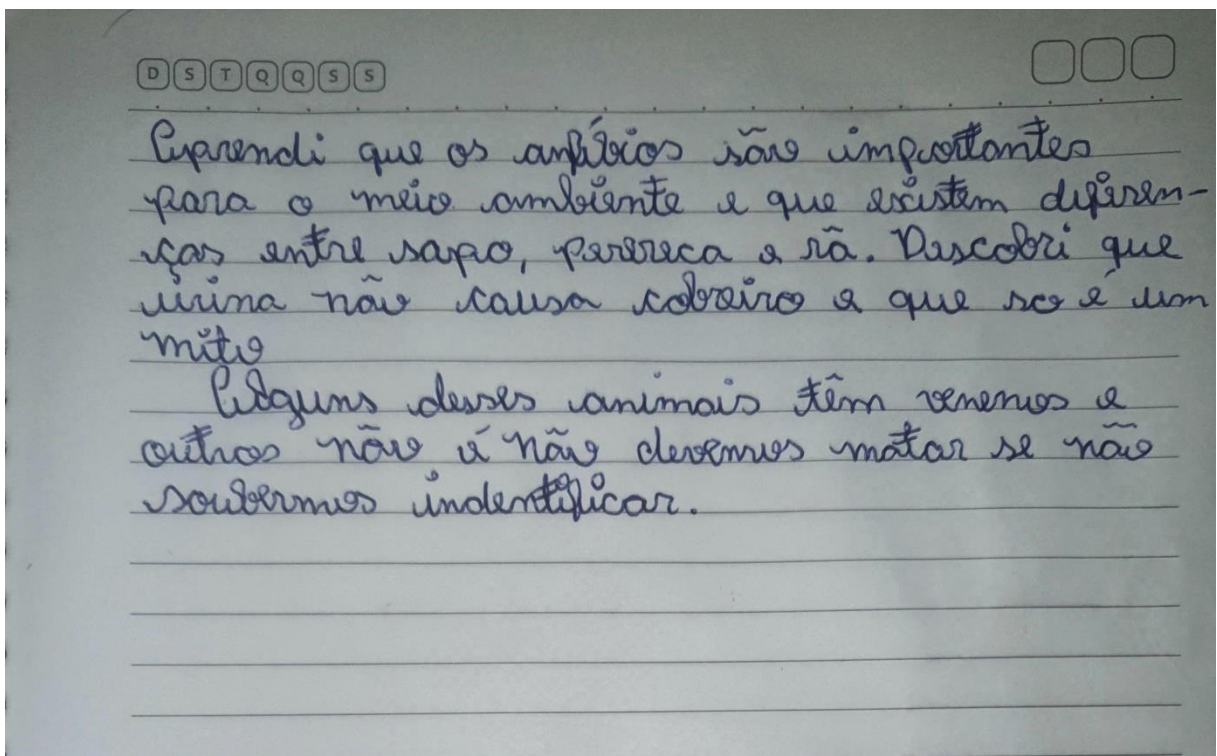 D S T Q Q S S
Aprendi que os anfíbios são importantes
para o meio ambiente e que existem diferen-
ças entre sapo, perereca e rã. Descobri que
urina não causa cobreiro e que so é um
mito
Alguns desses animais têm venenos e
outros não é não devemos matar se não
soubermos indentificar.